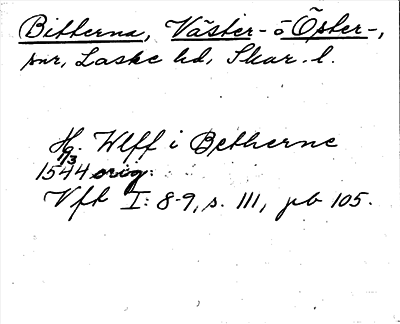 Bitterna, Väster- o Öster-,
snr, Laske hd, Skar. l.
Hg. Wlff i Betherne
1/3
1544 orig.
Vft I: 8-9, s. 111, pb 105.